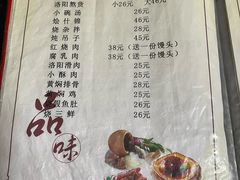 洛阳熬货 小26元 大46元
小碗汤 26元
烩什锦 26元
烧杂拌 28元
炖吊子 45元
红烧肉 38元（送一份馒头）
腐乳肉 38元（送一份馒头）
洛阳滑肉 26元
小酥肉 25元
黄焖排骨 28元
黄焖鸡 25元
假鱼肚 26元
烧三鲜 26元
品味